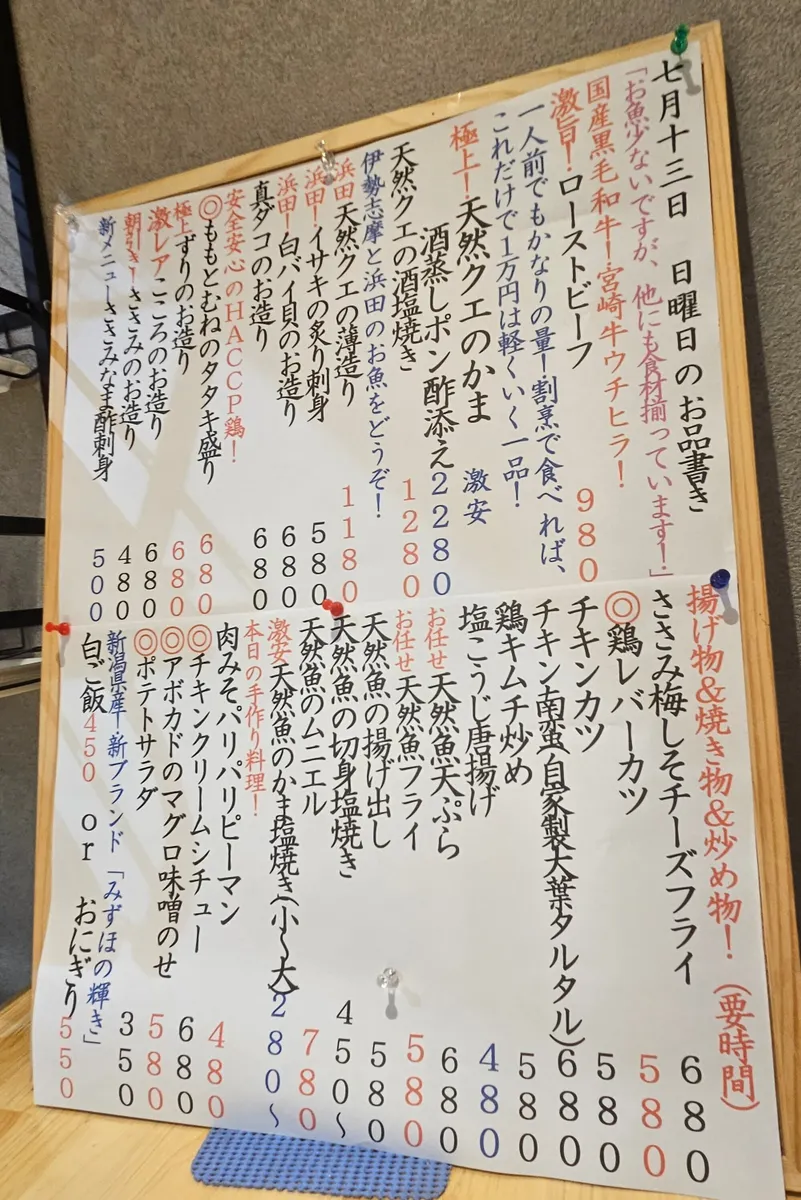 七月十三日　日曜日のお品書き
「お魚少ないですが、他にも食材揃っています！」
国産黒毛和牛！宮崎牛ウチヒラ！
激旨！ローストビーフ　980
一人前でもかなりの量！割烹で食べれば、
これだけで1万円は軽くいく一品！
極上！天然クエのかま　激安
酒蒸しポン酢添え　2280
天然クエの酒塩焼き　1280
伊勢志摩と浜田のお魚をどうぞ！
浜田　天然クエの薄造り　1180
浜田！イサキの炙り刺身　580
浜田！白バイ貝のお造り　680
真ダコのお造り　680
安全安心のHACCP鶏！
◎ももとむねのタタキ盛り　680
極上ずりのお造り　680
激レアこころのお造り　680
朝引き！ささみのお造り　480
新メニューささみなま酢刺身　500
揚げ物&焼き物&炒め物！（要時間）
ささみ梅しそチーズフライ　680
◎鶏レバーカツ　580
チキンカツ　580
チキン南蛮（自家製大葉タルタル）　680
鶏キムチ炒め　580
塩こうじ唐揚げ　480
お任せ天然魚天ぷら　680
お任せ天然魚フライ　580
天然魚の揚げ出し　580
天然魚の切身塩焼き　450〜
天然魚のムニエル　780
激安天然魚のかま塩焼き（小〜大）280〜
本日の手作り料理！
肉みそパリパリピーマン　480
◎チキンクリームシチュー　680
◎アボカドのマグロ味噌のせ　580
◎ポテトサラダ　350
新潟県産！新ブランド「みずほの輝き」
白ご飯450　or　おにぎり550